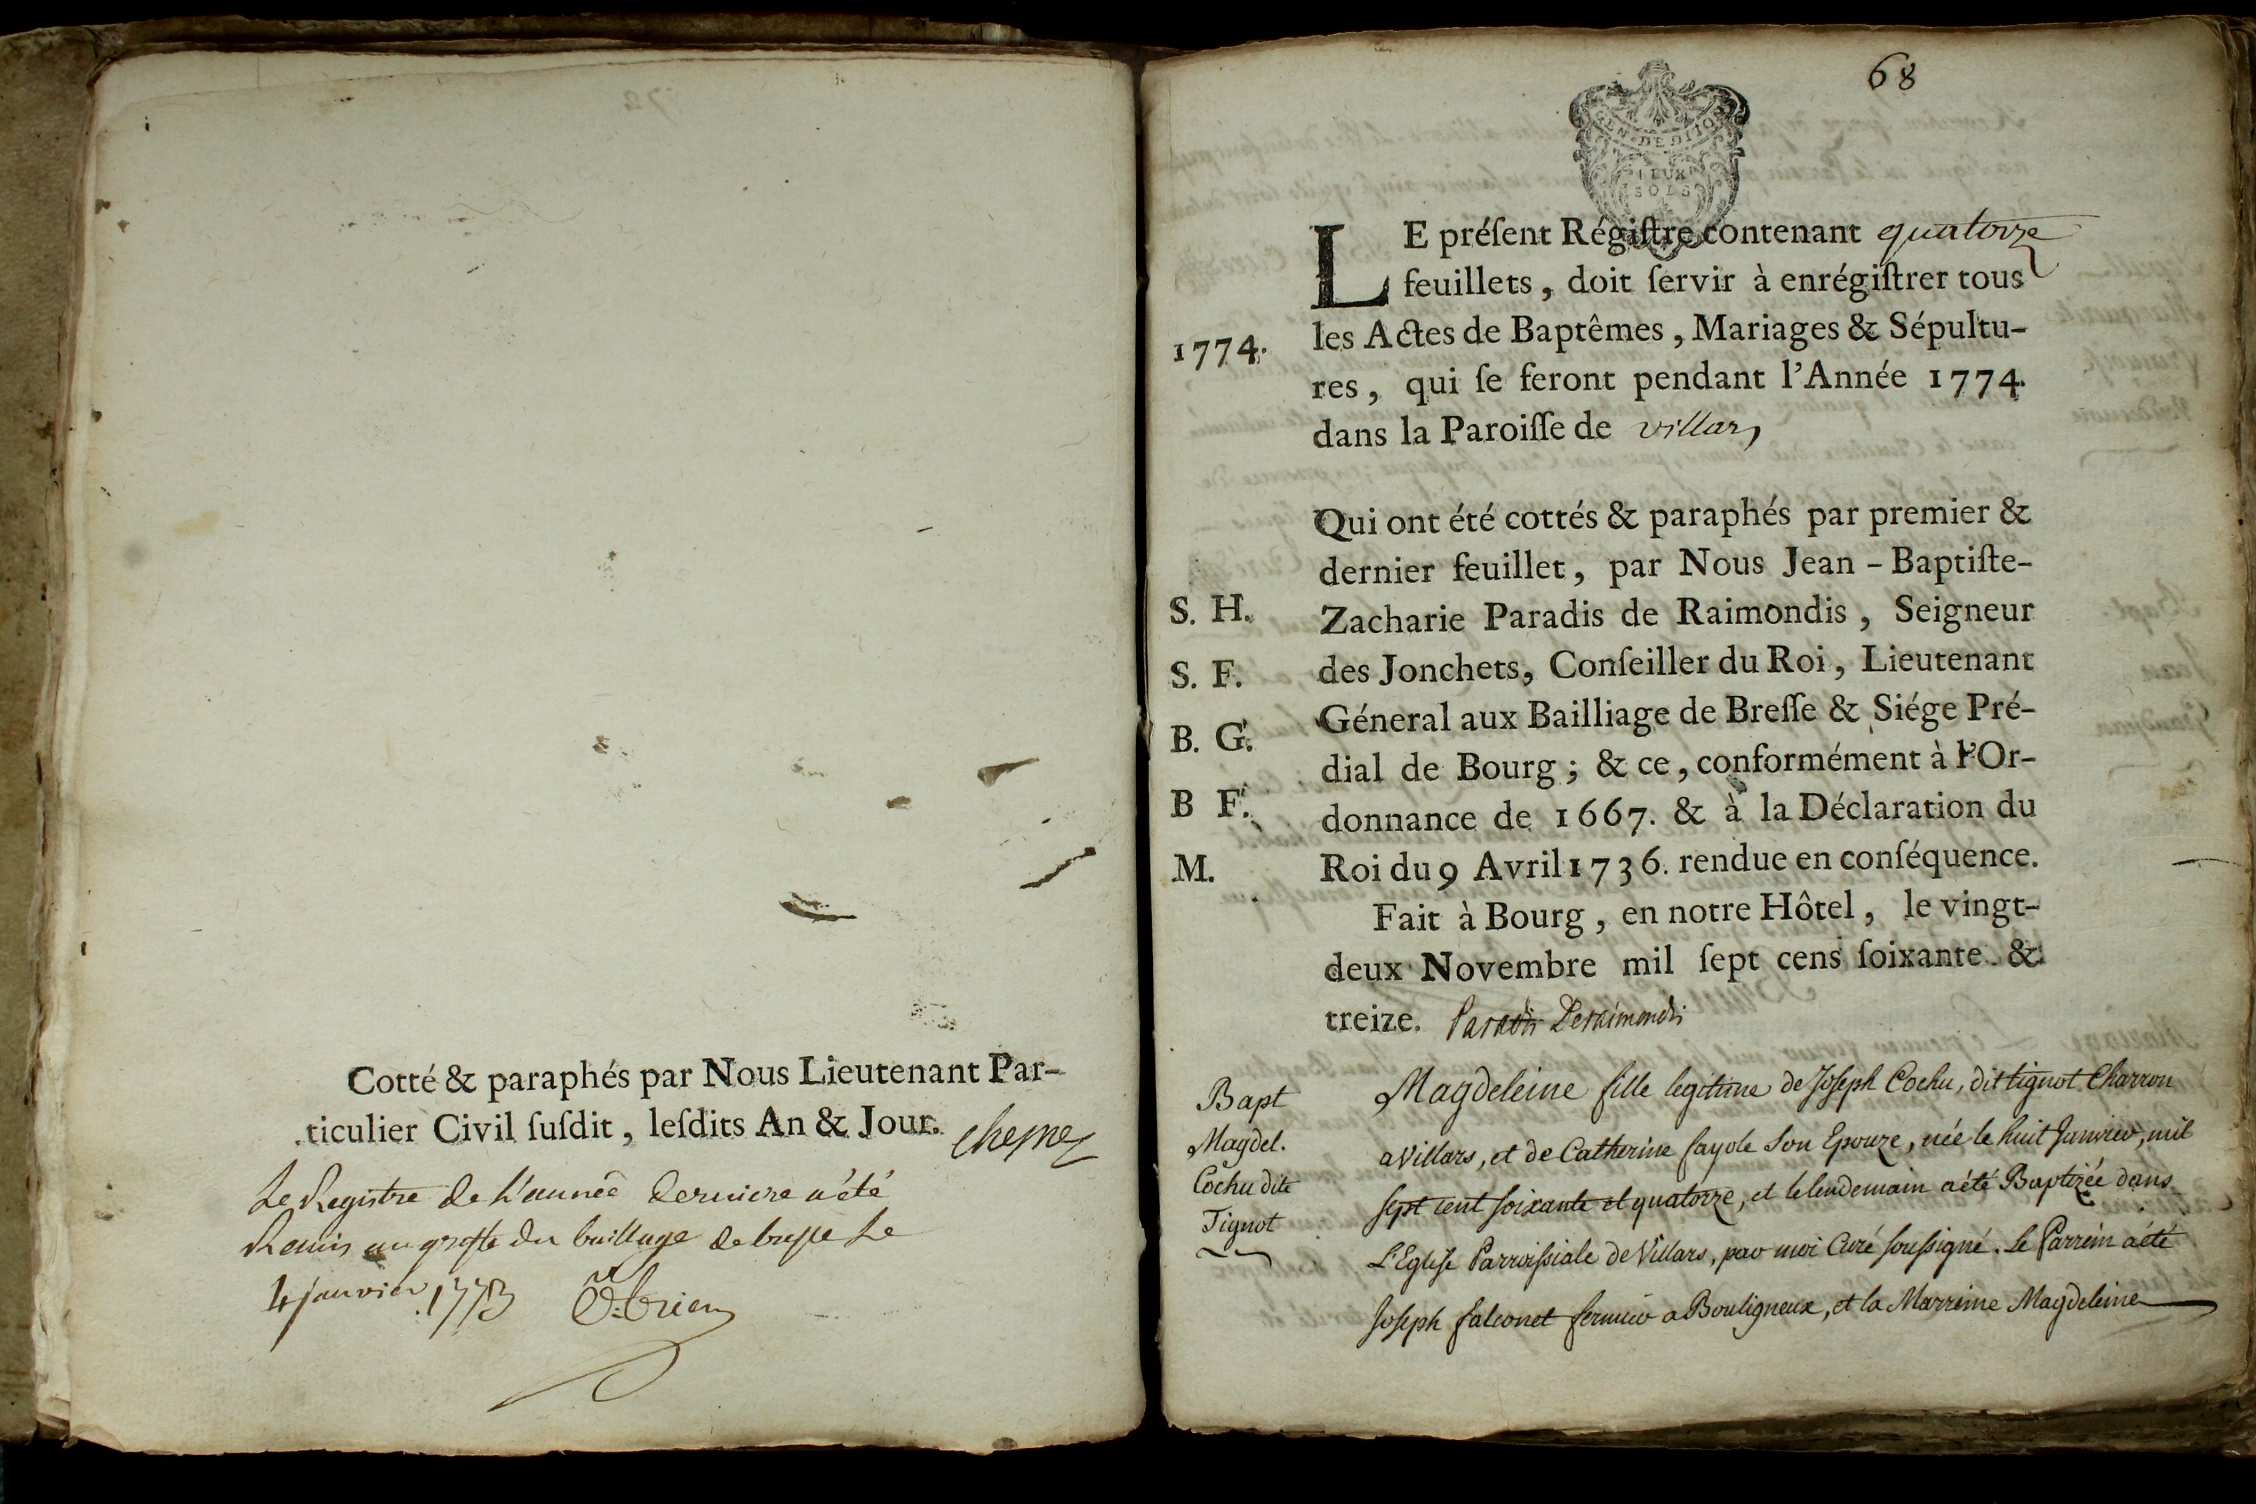 Cotté & paraphés par Nous Lieutenant Par-
ticulier Civil ſuſdit, leſdits An & Jour.
Le Registre de L'année derniere a été
Remis au greffe du bailliage de bresse Le
4 janvier 1773
68
GEN. DE DIION
DEUX
SOLS
LE préſent Régiſtre contenant quatorze
feuillets, doit ſervir à enrégiſtrer tous
les Actes de Baptêmes, Mariages & Sépultu-
1774.
res, qui ſe feront pendant l'Année 1774.
dans la Paroiſſe de villars
Qui ont été cottés & paraphés par premier &
dernier feuillet, par Nous Jean-Baptiſte-
S. H.
Zacharie Paradis de Raimondis, Seigneur
S. F.
des Jonchets, Conſeiller du Roi, Lieutenant
B. G.
Géneral aux Bailliage de Breſſe & Siége Pré-
dial de Bourg; & ce, conformément à l'Or-
B F.
donnance de 1667. & à la Déclaration du
M.
Roi du 9 Avril 1736. rendue en conſéquence.
Fait à Bourg, en notre Hôtel, le vingt-
deux Novembre mil ſept cens ſoixante &
treize. Paradis Deraimondis
Bapt
Magdel.
Cochu dite
Tignot
Magdeleine fille legitime de Joseph Cochu, dit tignot Charron
a Villars, et de Catherine fayole Son Epouze, née le huit Janvier, mil
sept cent soixante et quatorze, et le lendemain a été Baptizée dans
L'Eglise Parroissiale de Villars, par moi Curé soussigné. Le Parrein a été
Joseph falconet fermier a Bouligneux, et la Marreine Magdeleine